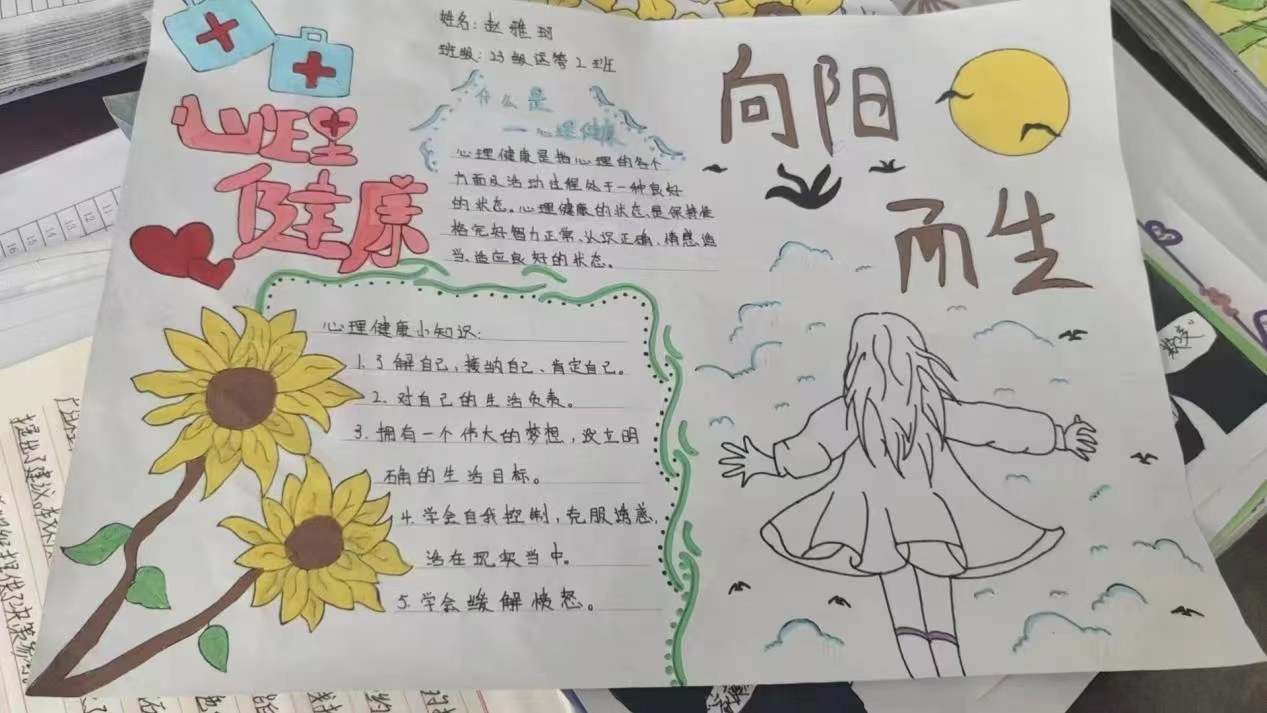 姓名：赵雅珂
班级：23级运营2班
心理
健康
什么是
—心理健康
心理健康是指心理的各个
方面及活动过程处于一种良好
的状态。心理健康的状态是保持性
格完好智力正常、认识正确、情感适
当、适应良好的状态。
心理健康小知识：
1.了解自己，接纳自己、肯定自己。
2. 对自己的生活负责。
3. 拥有一个伟大的梦想，设立明
确的生活目标。
4. 学会自我控制，克服诱惑，
活在现实当中。
5. 学会缓解愤怒。
向阳
而生
提出了建议